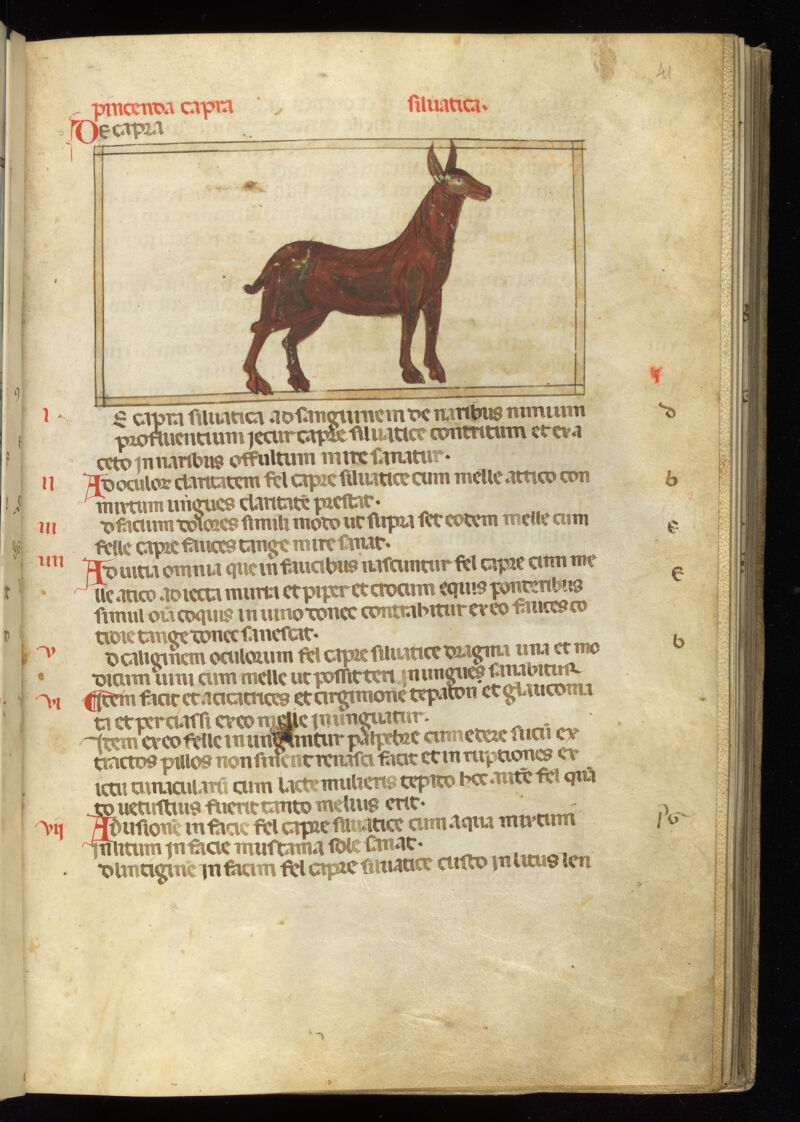 41
pincenda capra siluatica.
De capra
I E capra siluatica ad sanguinem de naribus nimium
profluentium jecur capre siluatice contritum et ex a
ceto jn naribus offultum mire sanatur.
II Ad oculoꝝ claritatem fel capre siluatice cum melle attico con d
mixtum unges claritatē prestat. b
III d facium dolores simili modo ut supra set eodem melle cum e
felle capre fauces tange mire sanat.
IIII Ad uitia omnia que in faucibus nascuntur fel capre cum me e
lle atico adiecta murta et piper et crocum equis ponderibus
simul oīa coquis in uino donec contrahitur ex eo fauces co
tidie tange donec sanescat.
V d caliginem oculorum fel capre siluatice dragma una et mo b
dicum uini cum melle ut possit teri jnungues sanabitur
VI Item facit et acicatrices et argimone et glaucoma
ti et per classi ex eo melle jnunguatur.
Jtem ex eo felle inunguantur palpebre cum edere sucū ex
tractos pillos non sinent renasci facit et in ruptiones ex
ictu tunacularū cum lacte mulieris tepido hec autē fel quā
to uetustius fuerit tanto melius erit.
VII Ad usionē in facie fel capre siluatice cum aqua mixtum
jnlitum jn facie mustama sole sanat.
d lintigine jn facim fel capre siluatice custo jnlitus len